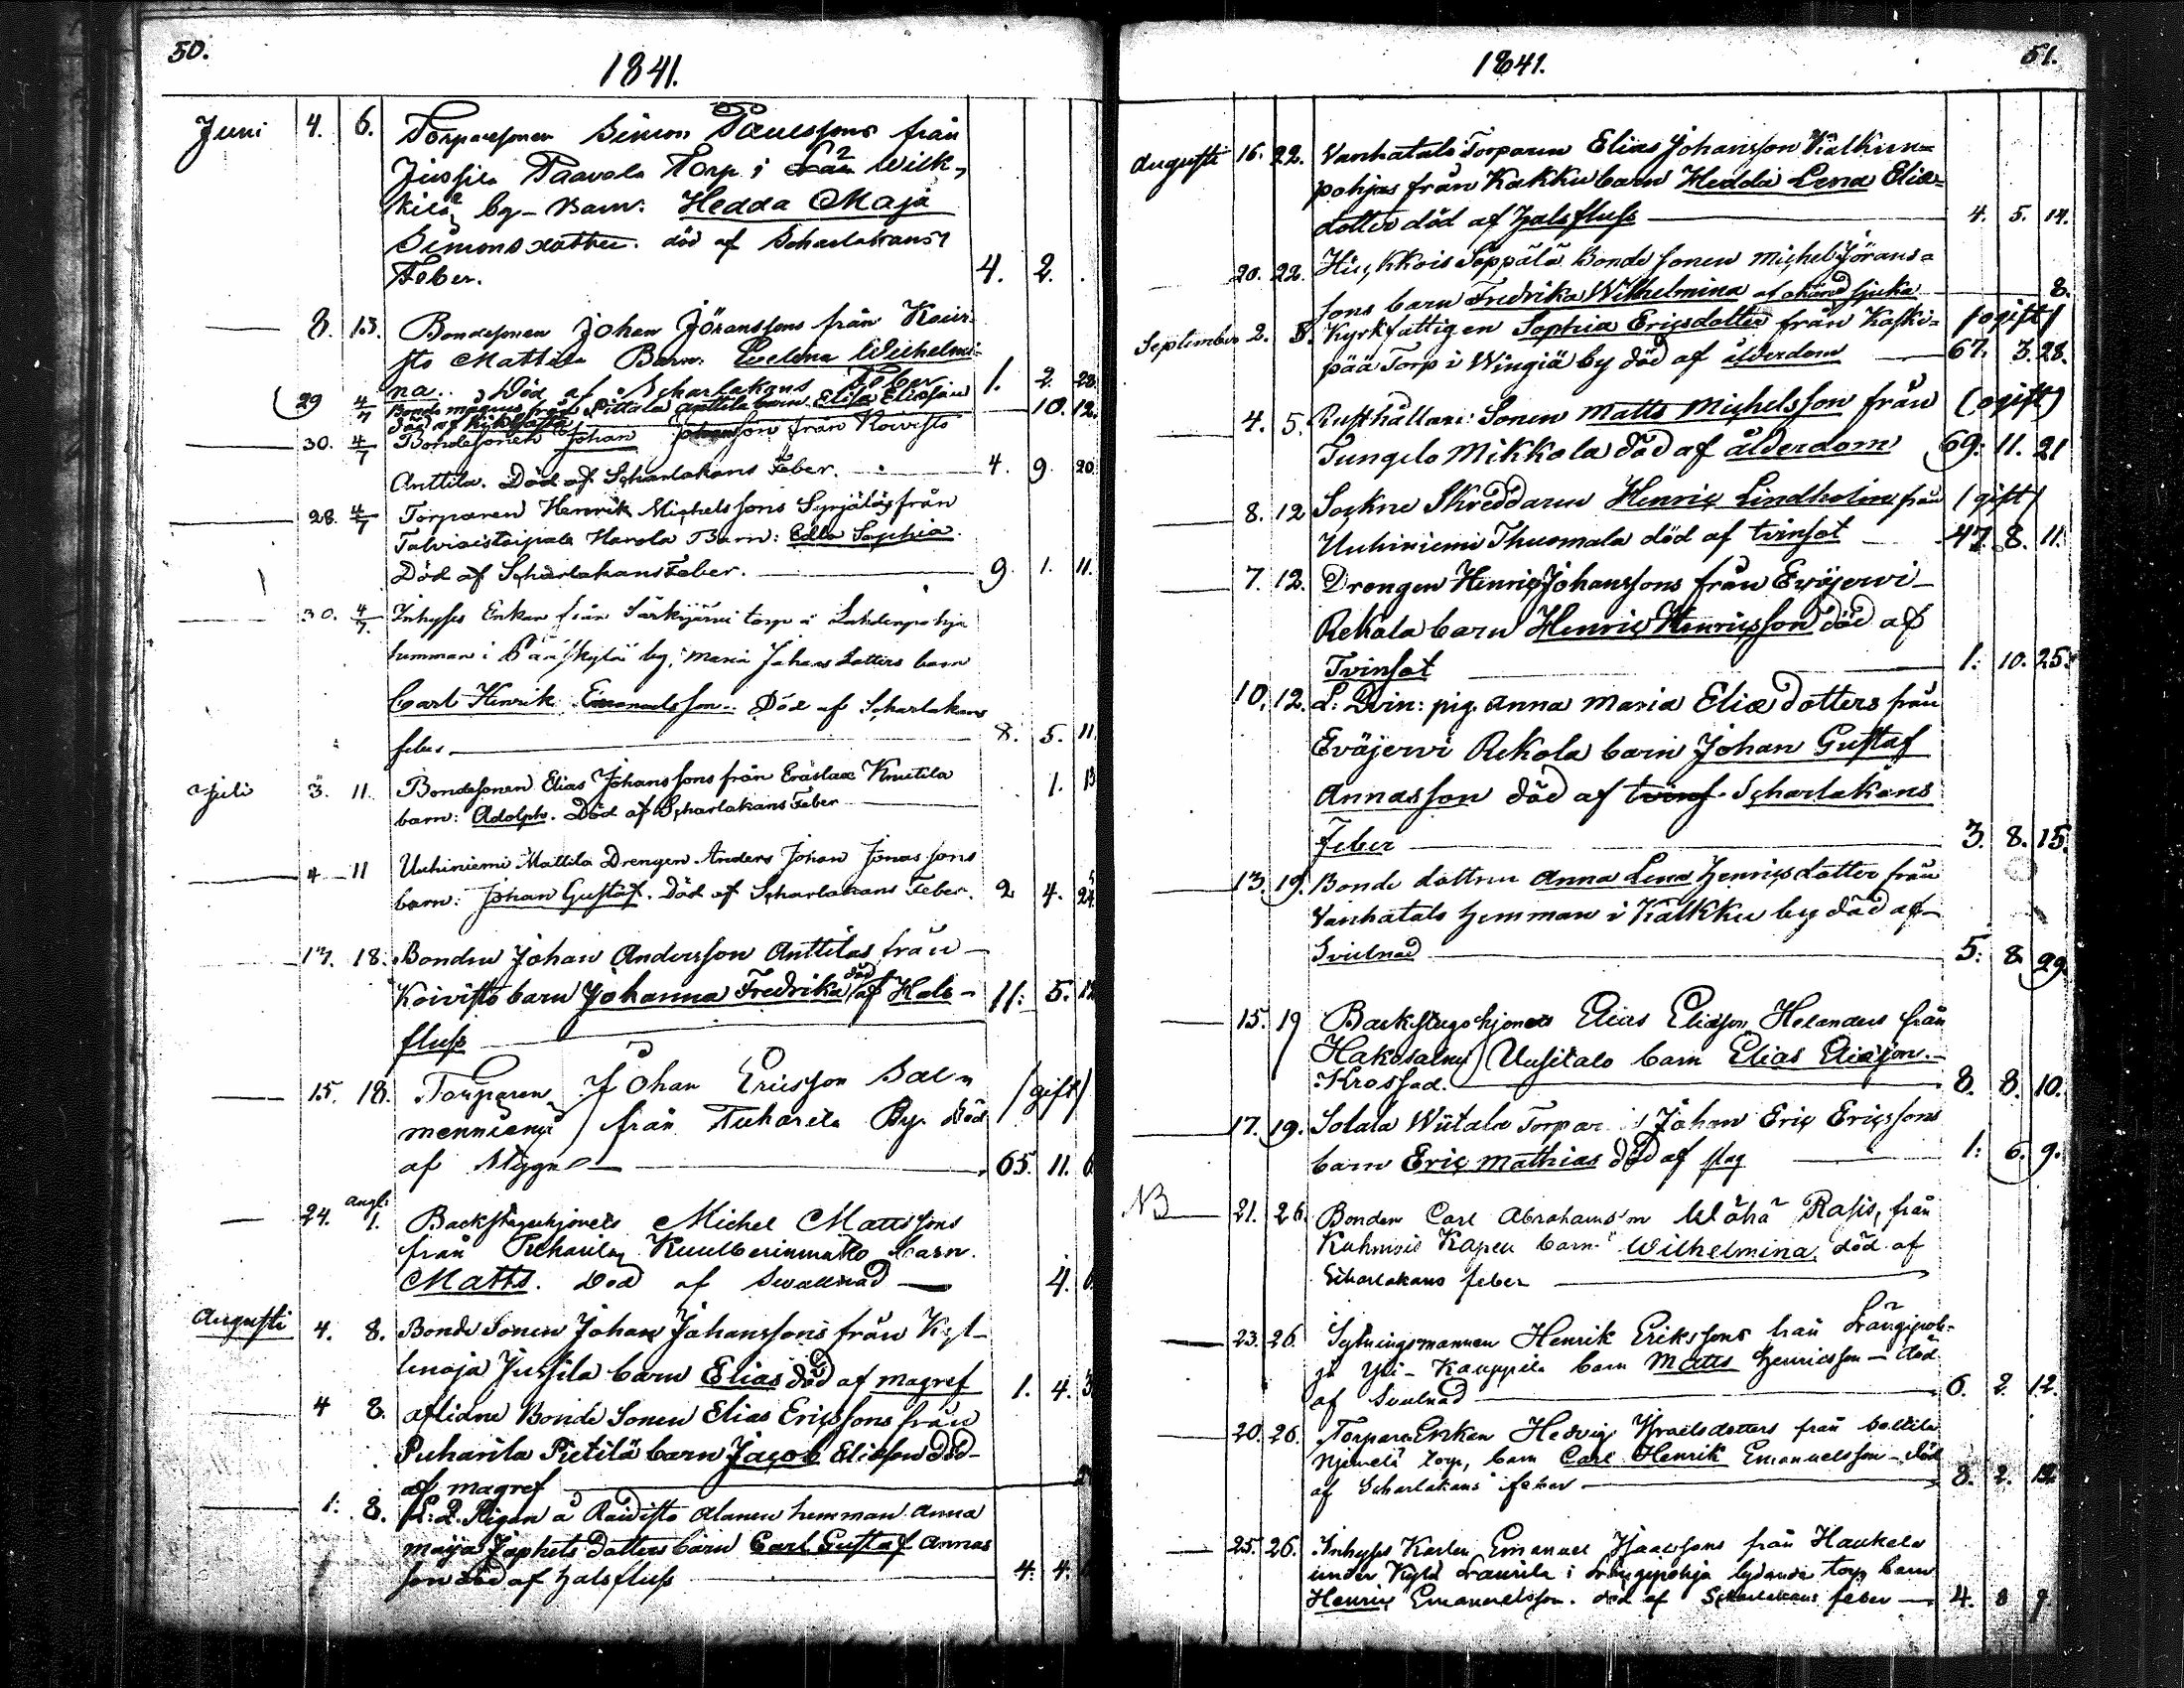 50.
1841.
Juni 4. 6. Torparesonen Simon Paulssons från
Jussila Paavola Torp i Wilk-
kilä by - Barn: Hedda Maja
Simonsdotter. död af Scharlakans
Feber. 4. 2.
8. 13. Bondesonen Johan Jöranssons från Koivi-
sto Mattila Barn: Evelina Wilhelmi-
na. Död af Scharlakans Feber 1. 2. 28.
29 4/7 Bonde från Pittala Anttila barn Elisa Eliasson
död af Kikhosta 10. 12.
30. 4/7 Bondesonen Johan Johansson från Koivisto
Anttila. Död af Scharlakans Feber. 4. 9. 20
28. 4/7 Torparen Henrik Michelssons Syrjäläs från
Talviaistaipale Harola Barn: Edla Sophia.
Död af Scharlakans Feber. 9. 1. 11.
30. 4/7. Inhyses Enkan från Särkijärvi torp å Lahdenpohja
hemman i by, Maria Johansdotters barn
Carl Henrik Emanuelsson. Död af Scharlakans
feber 8. 5. 11.
Juli 3. 11. Bondesonen Elias Johanssons från Eräslax Knutila
barn: Adolph. Död af Scharlakans Feber 1. 13
4 11 Uuhiniemi Mattila Drengen Anders Johan Jonassons
barn: Johan Gustaf. Död af Scharlakans Feber. 2 4. 24.
17. 18. Bonden Johan Andersson Anttilas från
Koivisto barn Johanna Fredrika död af Hals- 11: 5. 12
fluss
15. 18. Torparen Johan Ericsson Sal- /gift/
menniemi från Puharila By. död
af Stygn 65. 11. 6
24. Augst. 1. Backstuguhjonets Michel Mattssons
från Puharila barn.
Matts. Död af Svullnad 4. 6
Augusti 4. 8. Bonde Sonen Johan Johanssons från Kyl-
lenoja Jussila barn Elias död af magref 1. 4. 3
4 8. aflidne Bonde Sonen Elias Ericssons från
Puharila Pietilä barn Jacob Eliasson död
af magref
1: 8. L: Q. Pigan å Raidisto Alanen hemman Anna
Maija Japhets dotters barn Carl Gustaf Annas
son död af halsfluss 4. 4.
1841.
51.
Augusti 16. 22. Vanhatalo Torparen Elias Johansson Kälkun-
pohjas från Kakku barn Hedda Lena Elia-
dotter död af halsfluss 4. 5. 14.
20. 22. Seppälä Bonde sonen Michel Jörans-
sons barn Fredrika Wilhelmina af okänd sjuka 8.
September 2. 5. Kyrkfattigen Sophia Ericsdotter från Koski- /ogift/
pää Torp i Wingiä by död af ålderdom 67. 3. 28.
4. 5. Rusthållare Sonen Matts Michelsson från (ogift)
Tungelo Mikkola död af ålderdom 69: 11. 21
8. 12 Sockne Skreddaren Henric Lindholm från /gift/
Uuhiniemi Thuomala död af tvinsot 47. 8. 11.
7. 12. Drengen Henric Johanssons från Eväjervi
Rekola barn Henric Henricsson död af
Tvinsot 1: 10. 25.
10. 12. L: Qvin: pig. Anna Maria Eliædotters från
Eväjervi Rekola barn Johan Gustaf
Annasson död af tvins Scharlakans
Feber 3. 8. 15.
13. 19. Bonde dottren Anna Lena Henricsdotter från
Vanhatalo hemman i Kalkku by död af
Svulnad 5: 8. 29.
15. 19 Backstugohjonets Elias Eliasson Helanders från
Hakosalmi Uusitalo barn Elias Eliasson.
Krossad. 8. 8. 10.
17. 19. Solala Wiitala Torpar Johan Eric Ericssons
barn Eric Mathias död af slag 1: 6. 9.
NB 21. 26. Bonden Carl Abrahamson Wähä Rasis, från
Kuhmois Kapell barn Wilhelmina död af
Scharlakans feber
23. 26. Sytningsmannen Henrik Erikssons från Långipoh-
ja Yli-Kauppila barn Matts Henricsson - död
af Svulnad 6. 2. 12.
20. 26. Torpare Enkan Hedvig Israelsdotters från
torp, barn Carl Henrik Emanuelsson - död
af Scharlakans feber 8. 2. 12
25. 26. Inhyses Karlen Emanuel Isaacssons från Haukala
under Kylä Laurila i Långipohja lydande torp barn
Henric Emanuelsson. död af Scharlakans feber 4. 8 9